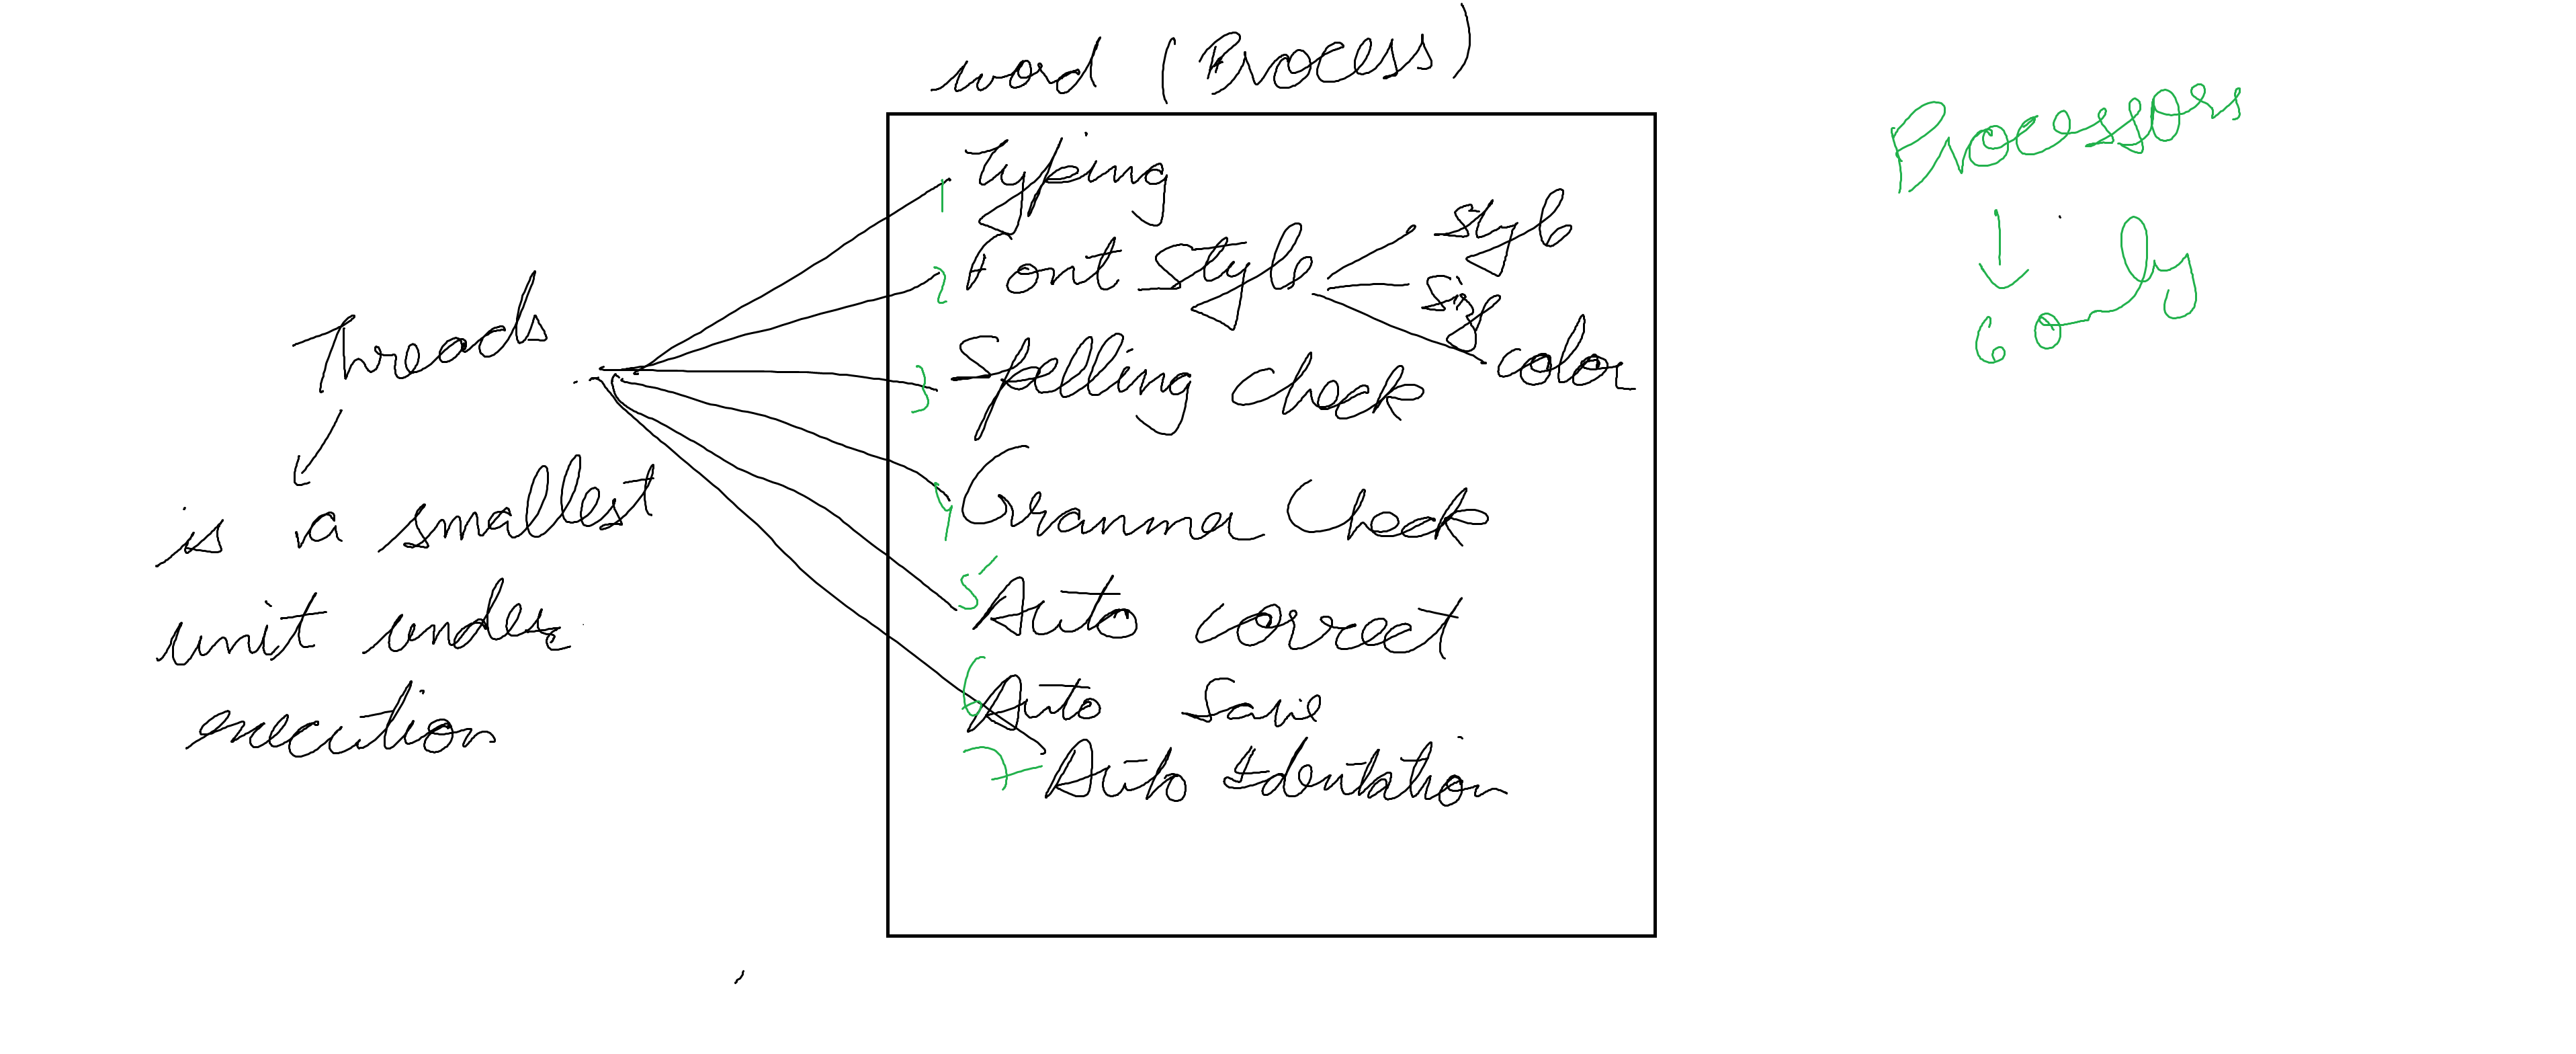 word (Process)
Processors
6 only
Threads
is a smallest
unit under
execution
1 Typing
2 Font Style
style
size
color
3 Spelling check
4 Gramma Check
5 Auto correct
6 Auto Save
7 Auto Identation